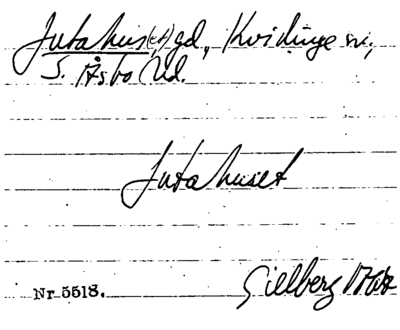 Jutahus(et) gd, Kvidinge sn,
S. Åsbo hd.
Jutahuset
Gillberg
Nr 5518.